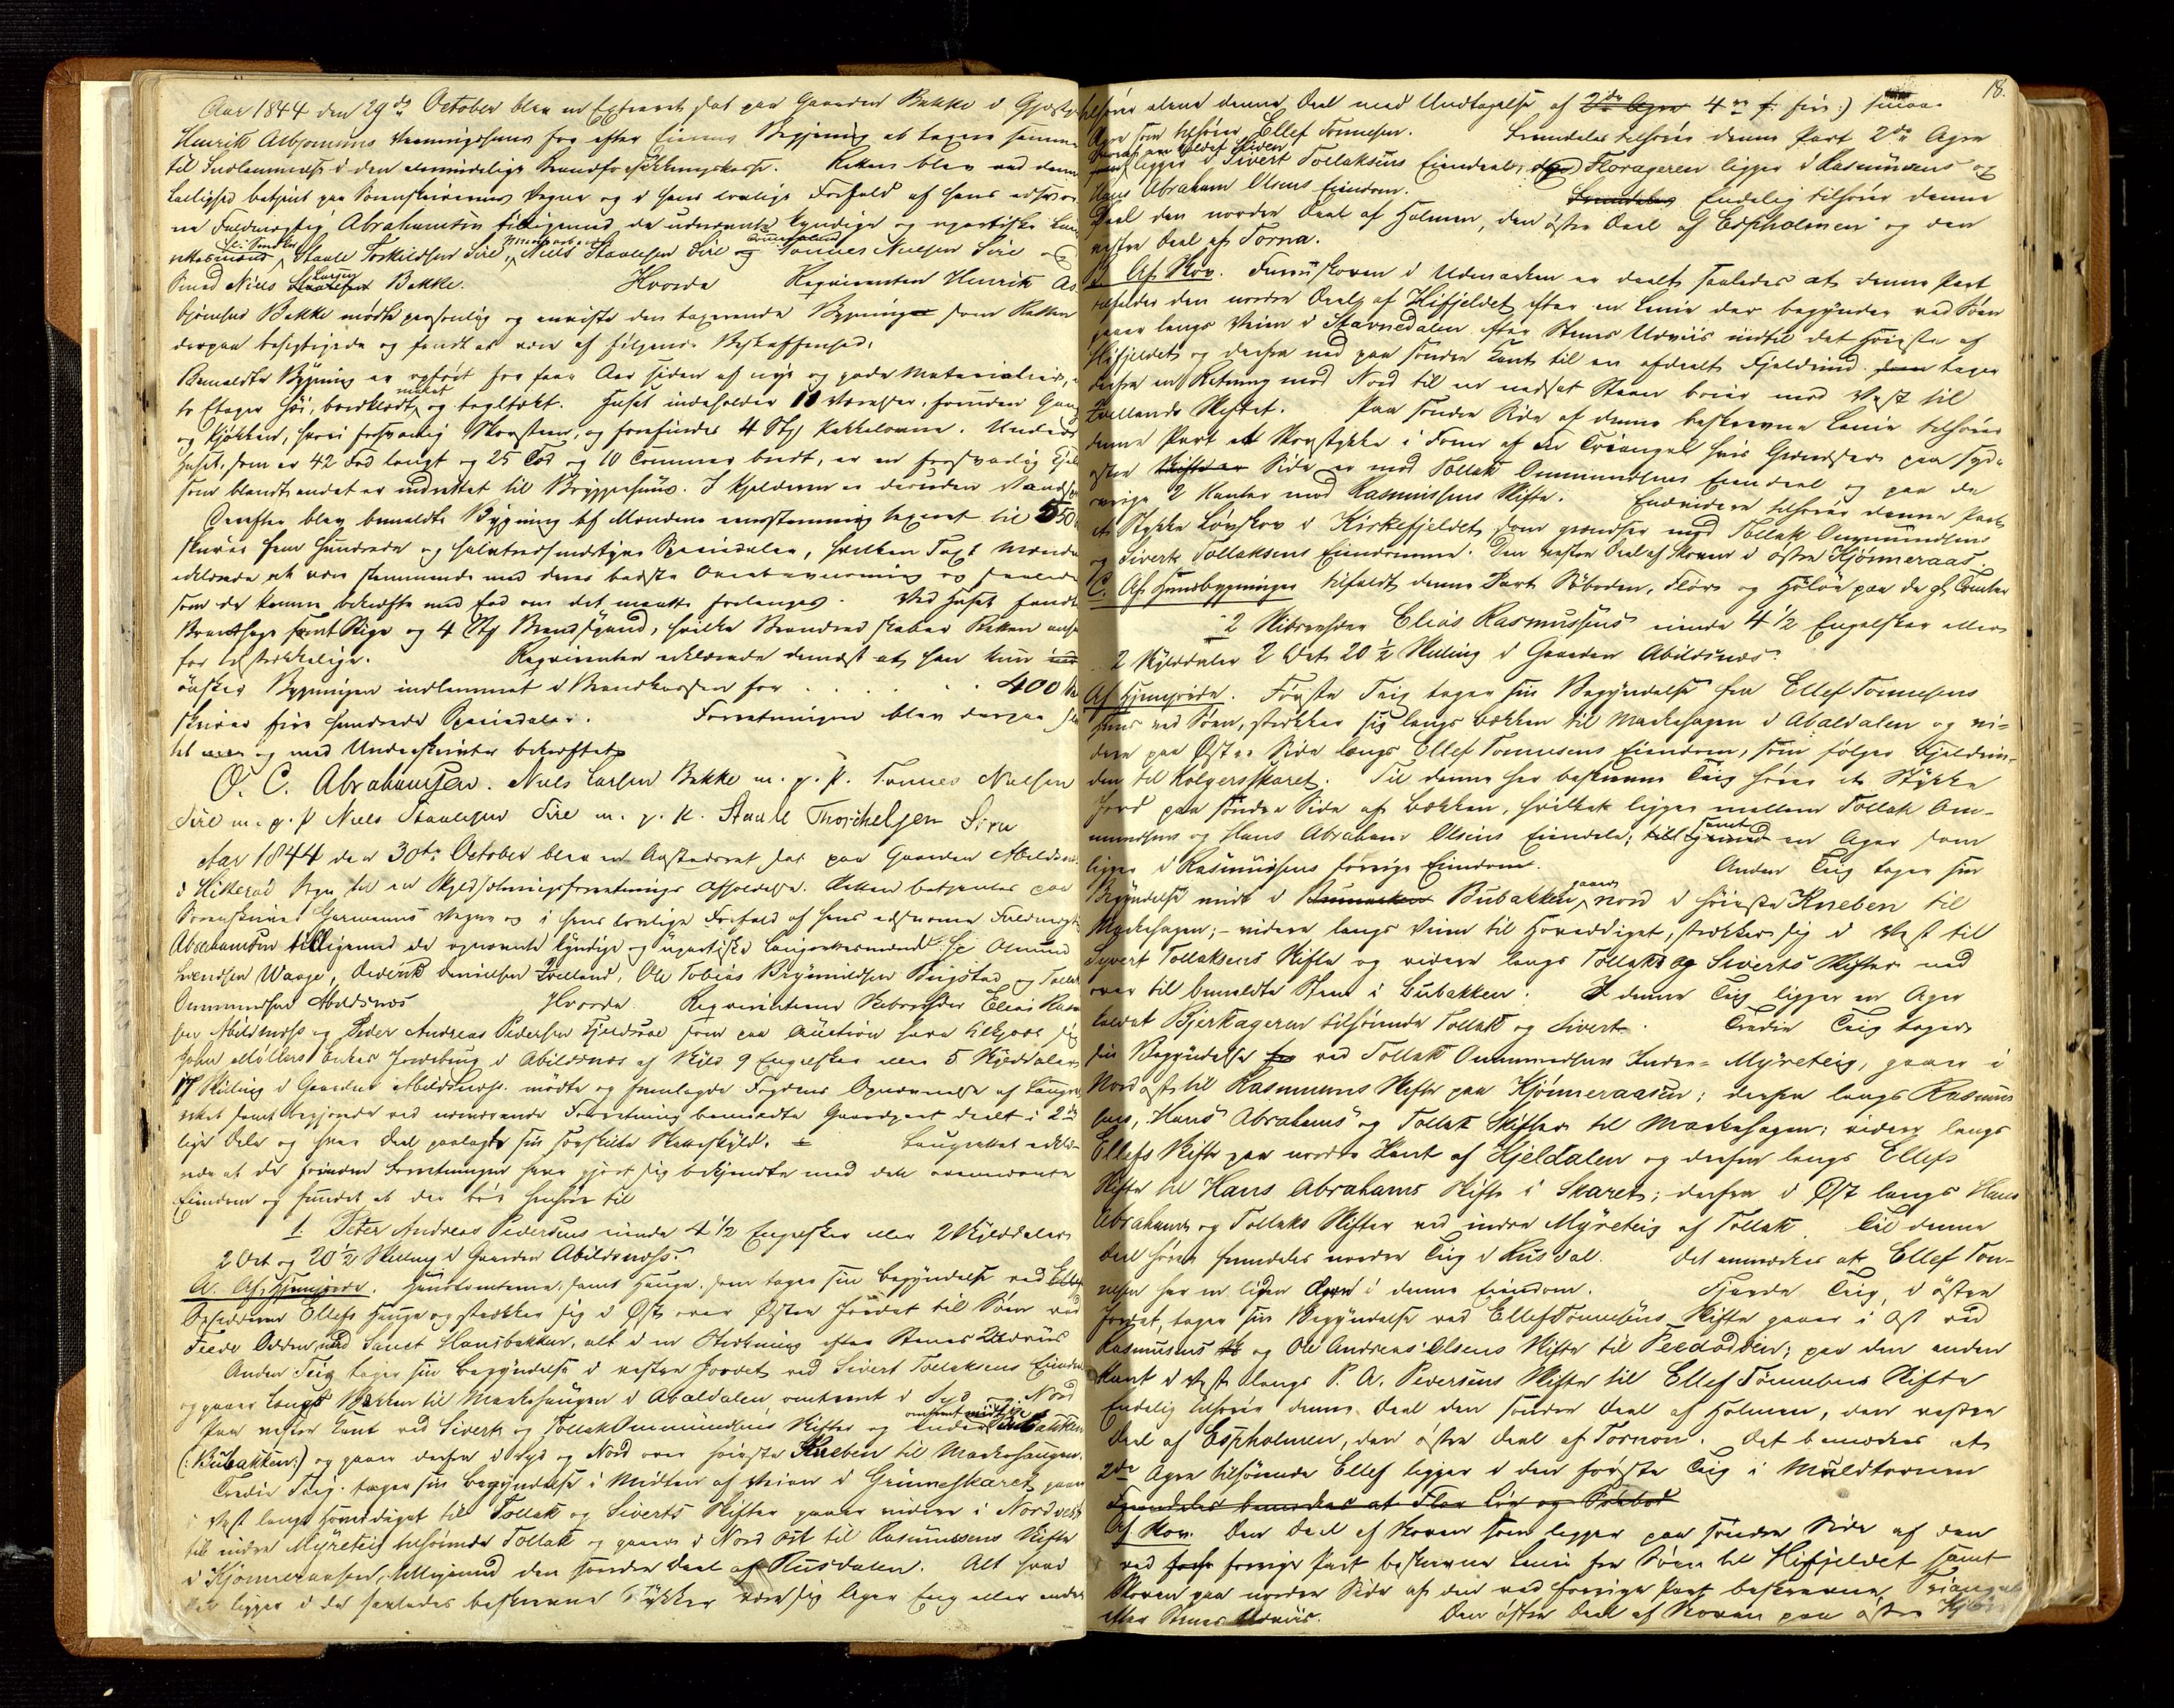 Aar 1844 den 29de October blev en Extraret sat paa Gaarden Bakke i
Henrik Asbjørnsens Vaaningshuus for efter Eierens Begjering at taxere samme
til Indlemmelse i den almindelige Brandforsikkringskasse. Retten blev ved denne
Leilighed betjent paa Sorenskriverens Vegne og i hans lovlige Forfald af hans edsvor
ne Fuldmægtig Abrahamsen tilligemed de udnævnte kyndige og upartiske
Staale Torkildsen Sire, Niels Staalesen Sire og Tønnes Nielsen Sire og
Smed Niels Larsen Bakke. Hvorda Reqvirenten Henrik As
bjørnsen Bakke mødte personlig og anviste den taxerende Bygning som Retten
derpaa besigtigede og fandt at være af følgende Beskaffenhed.
Bemeldte Bygning er opført for faae Aar siden af nye og gode Materialier,
to Etager høi, bordklædt, malet og tegltækt. Huset indeholder 10 Værelser, foruden Gang
og Kjøkken, hvori forsvarlig Skorsteen, og forefindes 4 Stk Kakkelovne. Under
Huset, som er 42 Fod langt og 25 Fod og 10 Tommer bredt, er en forsvarlig Kjel
som blandt andet er indrettet til Bryggerhuus. I Kjelderen er desuden Vand
Derefter blev bemeldte Bygning af Mændene eenstemmig taxeret til 550
skriver fem hundrede og halvtredsindstyve Speciedaler, hvilken Taxt Mændene
erklærede at være stemmende med deres bedste Overbeviisning og saaledes
som de kunne bekræfte med Eed om det maatte forlanges. Ved Huset fandtes
Brandhage samt Stige og 4 Stk Brandspand, hvilke Brandredskaber Retten
for tilstrækkelige. Reqvirenten erklærede dernæst at han kun
ønsker Bygningen indlemmet i Brandkassen for . . . . . . 400
skriver fire hundrede Speciedaler. Forretningen blev derpaa
tet og med Underskrifter bekræftet
O. C. Abrahamsen. Niels Larsen Bakke m. p. P. Tønnes Nielsen
Sire m. p. P Niels Staalesen Sire m. p. P. Staale Thorchelsen Sire
Aar 1844 den 30te October blev en Aastedsret sat paa Gaarden Abildsnæs
i Hitterøe Sogn til en Skyldsætningsforretnings Afholdelse. Retten betjentes paa
Sorenskriver Vegne og i hans lovlige Forfald af hans edsvorne Fuldmægtig
Abrahamsen tilligemed de opnævnte kyndige og upartiske Laugrettesmænd Amund
Svendsen Waage, Diderik Danielsen Øvelland, Ole Tobias Bryniulfsen Rugstad og Tollak
Ommundsen Abildsnæs Hvorda Reqvirenterne Elias Rasmus
sen Abildsnæs og Peder Andreas Pedersen som paa Auction have tilkjøbt sig
Møllers Enkes Jordebrug i Abildsnæs af Skyld 9 Engelsker eller 5 Skylddaler
17 Skilling i Gaarden Abildsnæs mødte og fremlagde Fogdens Opnævnelse af Laugret
samt begjerede ved nærværende Forretning bemeldte Gaardpart deelt i 2de
lige Dele og hver Deel paalagt sin særskilte Matrikulskyld. Laugrettet erklæ-
rede at de forinden Forretningen have gjort sig bekjendte med den ommeldte
Eiendom og fundet at der bør henhøre til
1. Peter Andreas Pedersens eiende 4 1/2 Engelsker eller 2 Skylddaler
2 Ort og 20 1/2 Skilling i Gaarden Abildsnæs.
A. Af Hjemjorde. Huustomterne samt Hauge, som tager sin Begyndelse ved
Ellefs Hauge og strækker sig i Øst over Østre Jordet til Søen ved
ved Sanct Hansbakken, alt i en Strækning efter Stenes Udviis
Anden Teig tager sin Begyndelse i vestre Jordet ved Sivert Tollaksens Eiendom
og gaaer langs Bækken til Markehaugen i Abaldalen omtrent i Syd og Nord
Paa vestre Kant ved Siverts og Tollak Ommundsens Skifter og omtrent
(: Bubakken:) og gaaer derfra i Syd og Nord over høieste Kneben til Markehaugen.
Tredie Teig tager sin Begyndelse i Midten af Veien i Grinneskaret, gaaer
i Vest langs Hoveddiget til Tollak og Siverts Skifter gaaer videre i Nordvest
til indre Myreteig tilhørende Tollak og gaaer i Nord Øst til Rasmussens Skifte
i Kjønneraasen, tilligemed den søndre Deel af Rusdalen. Alt hvad
ligger i de saaledes beskrevne Stykker være sig Ager Eng eller andet
18.
tilhører alene denne Deel med Undtagelse af 4re (: fire:) smaae
Agre som tilhører Ellef Tønnesen. Fremdeles tilhører denne Part 2de Agre
ligger i Sivert Tollaksens Eiendeel, og Florageren ligger i Rasmussens og
Hans Abraham Olsens Eiendom. Endelig tilhører denne
Deel den nordre Deel af Holmen, den østre Deel af Espholmen og den
vestre Deel af Torna.
B. Af Skov. Furuskoven i Udmarken er deelt saaledes at denne Part
tilfalder den nordre Deel af Hifjeldet efter en Linie der begynder ved Søen
gaaer langs Veien i Stavnedalen efter Stenes Udviis indtil det høieste af
Hifjeldet og derfra ned paa søndre Kant til en afdeelt Fjeldrind tager
derfra en Retning mod Nord til en nedsat Steen bøier mod Vest til
Øvellands Skiftet. Paa søndre Side af denne beskrevne Linie tilhører
denne Part et Skovstykke i Form af en Triangel hvis Grændser paa Syd-
østre Side er mod Tollak Ommundsens Eiendeel og paa de
øvrige 2 Kanter mod Rasmussens Skifte. Endvidere tilhører denne Part
et Stykke Løvskov i Kirkefjeldet som grændser mod Tollak Ommundsens
og Siverts Tollaksens Eiendomme. Den vestre Deel af Skoven i østre Kjønneraas.
C. Af Huusbygninger tilfaldt denne Part Søboden, Flør og Høløe paa de gl. Tomter
2 Elias Rasmussens eiende 4 1/2 Engelsker eller
2 Skylddaler 2 Ort 20 1/2 Skilling i Gaarden Abildsnæs.
Af Hjemjorde. Første Teig tager sin Begyndelse fra Ellef Tønnesens
Huus ved Søen, strækker sig langs Bækken til Markehagen i Abaldalen og vi-
dere paa Østre Side langs Ellef Tønnesens Eiendom, som følger Fjeldrin-
den til Holgersskaret. Til denne her beskrevne Teig hører et Stykke
Jord paa søndre Side af Bækken, hvilket ligger mellem Tollak Om-
mundsens og Hans Abraham Olsens Eiendele; samt en Ager som
ligger i Rasmussens forrige Eiendom. Anden Teig tager sin
Begyndelse midt i Bubakken gaaer nord i høieste Kneben til
Markehagen; - videre langs Veien til Hoveddiget, strækker sig i Vest til
Syvert Tollaksens Skifte og videre langs Tollaks og Siverts Skifter ned
over til bemeldte Steen i Bubakken. I denne Teig ligger en Ager
kaldet Bjerkageren tilhørende Tollak og Sivert. Tredie Teig tager
sin Begyndelse ved Tollak Ommundsens Indre-Myreteig, gaaer i
Nordost til Rasmussens Skifte paa Kjønneraasen; derfra langs Rasmus-
sens, Hans Abrahams og Tollak Skifter til Markehagen; videre langs
Ellefs Skifte paa nordre Kant af Kjeldalen og derfra langs Ellefs
Skifte til Hans Abrahams Skifte i Skaret; derfra i Øst langs Hans
Abrahams og Tollaks Skifter ved indre Myreteig af Tollak. Til denne
Deel hører fremdeles nordre Teig i Rusdal. Det anmærkes at Ellef Tøn-
nesen har en liden Ager i denne Eiendom. Fjerde Teig, i østre
Jordet, tager sin Begyndelse ved Ellef Tønnesens Skifte gaaer i Øst ved
Rasmussens og Ole Andreas Olsens Skifte til Feedodden; paa den anden
Kant i Vest langs P. A. Pedersens Skifte til Ellef Tønnesens Skifte
Endelig tilhører denne Deel den søndre Deel af Holmen, den vestre
Deel af Espholmen, den østre Deel af Tornøn. Det bemærkes at
2de Agre tilhørende Ellef ligger i den første Teig i
Fremdeles bemærkes at Flør Løe og Søebod
Af Skov. Den Deel af Skoven som ligger paa søndre Side af den
ved forrige Part beskrevne Linie fra Søen til Hifjeldet samt
Skoven paa nordre Side af den ved forrige Part beskrevne Triangel
efter Stenes Udviis. Den østre Deel af Skoven paa østre